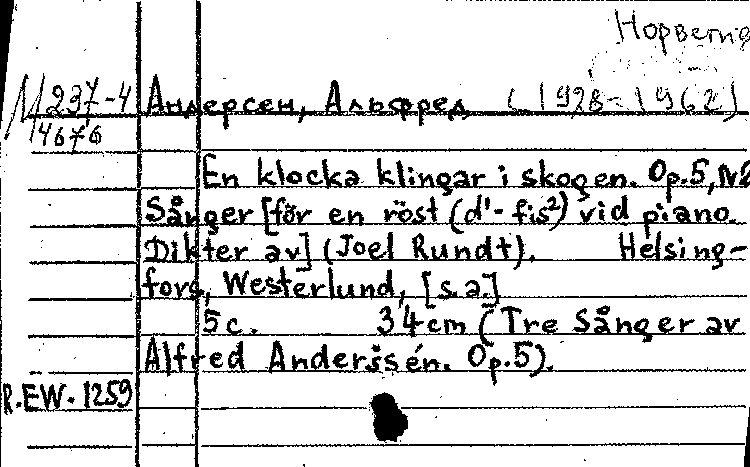 Норвегия
М 237-4 Андерсен, Альфред (1928-1962)
4676
En klocka klingar i skogen. Op.5, №2
Sånger [för en röst (d¹-fis²) vid piano.
Dikter av] (Joel Rundt). Helsing-
fors, Westerlund, [s.a.]
5 c. 34 cm (Tre Sånger av
Alfred Anderssén. Op.5).
R.EW.1259